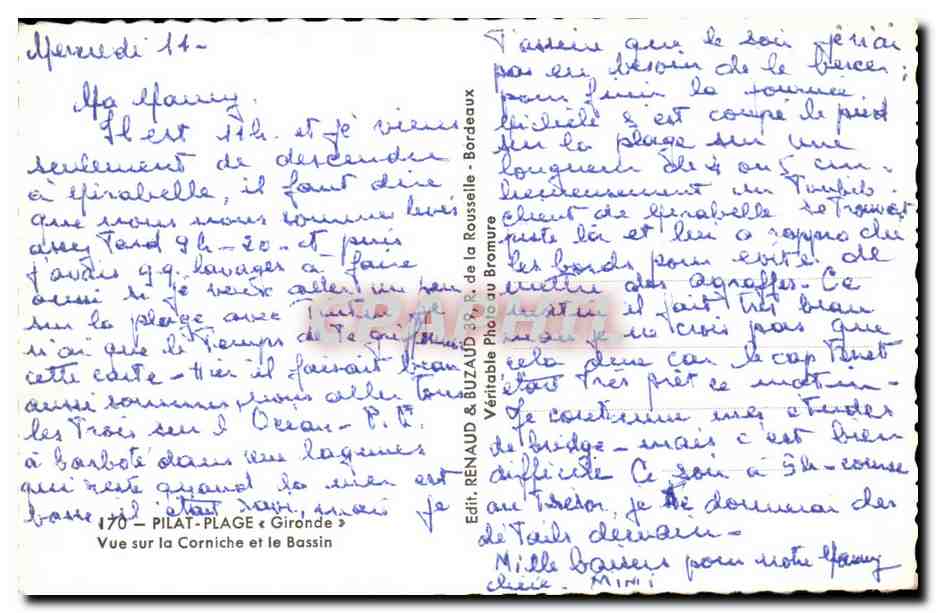 Mercredi 11-
Ma Mamy.
Il est 11h. et je viens
seulement de descendre
à Mirabelle, il faut dire
que nous nous sommes levés
assez tard 9h-20- et puis
j'avais q.q. lavages à faire
aussi si je veux aller un peu
sur la plage avec je
n'ai que le temps de te griffonner
cette carte - Hier il faisait beau
aussi sommes nous aller tous
les trois sur l'Océan - P.
à barboté dans une lagunes
qui reste quand la mer est
basse, il était ravi, mais je
170 - PILAT-PLAGE « Gironde »
Vue sur la Corniche et le Bassin
Edit. RENAUD & BUZAUD 39, R. de la Rousselle - Bordeaux
Véritable Photo au Bromure
t'assure que le soir je n'ai
pas eu besoin de le bercer ;
pour finir la journée
Michèle s'est coupé le pied
sur la plage sur une
longueur de 4 ou 5 cm -
heureusement un Toubib
client de Mirabelle se trouvait
juste là et lui a rapproché
les bords pour évité de
mettre des agraffes. Ce
matin il fait très beau
mais je ne crois pas que
cela dure car le cap Ferret
était très prêt ce matin -
Je continue mes études
de bridge - mais c'est bien
difficile Ce soir à 9h - course
au Trésor, je te donnerai des
détails demain -
Mille baisers pour notre Mamy
chérie - MIMI
CPAPHIL